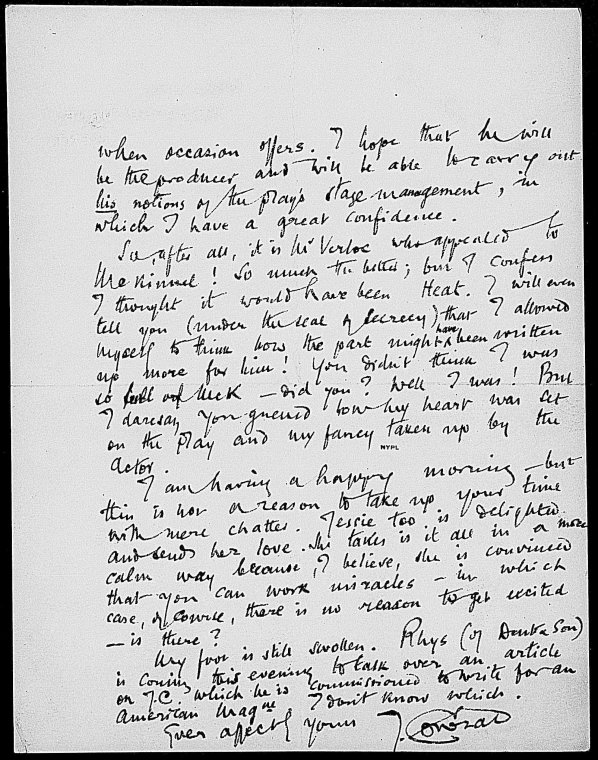 when occasion offers. I hope that he will
be the producer and will be able to carry out
his notions of the play's stage management, in
which I have a great confidence.
So, after all, it is Mr Verloc who appealed to
McKinnel! So much the better; but I confess
I thought it would have been Heat. I will even
tell you (under the seal of secrecy) that I allowed
myself to think how the part might have been written
up more for him! You didn't think I was
so full of luck – did you? Well I was! But
I daresay you guessed how my heart was set
on the play and my fancy taken up by the
NYPL
actor.
I am having a happy morning – but
this is not a reason to take up your time
with mere chatter. Jessie too is delighted
and sends her love. She takes is it all in a more
calm way because, I believe, she is convinced
that you can work miracles – in which
case, of course, there is no reason to get excited
– is there?
My foot is still swollen. Rhys (of Dent & Son)
is coming this evening to talk over an article
on J.C. which he is commissioned to write for an
American Magne I don't know which.
Ever affectly yours J. Conrad